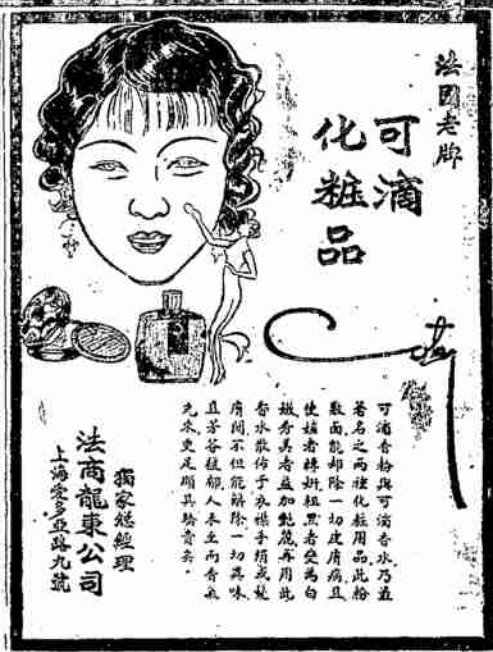 法國老牌
可滴
化粧品
Coty
可滴香粉與可滴香水乃最
著名之兩種化粧用品此粉
敷面能却除一切皮膚病且
使媸者轉妍粗黑者變為白
嫩秀美者益加艷麗再用此
香水散佈于衣襟手絹或統
房間不但能解除一切異味
且芬芳馥郁人未至而香氣
先來更足顯其驕貴矣。
獨家總經理
法商龍東公司
上海愛多亞路九號